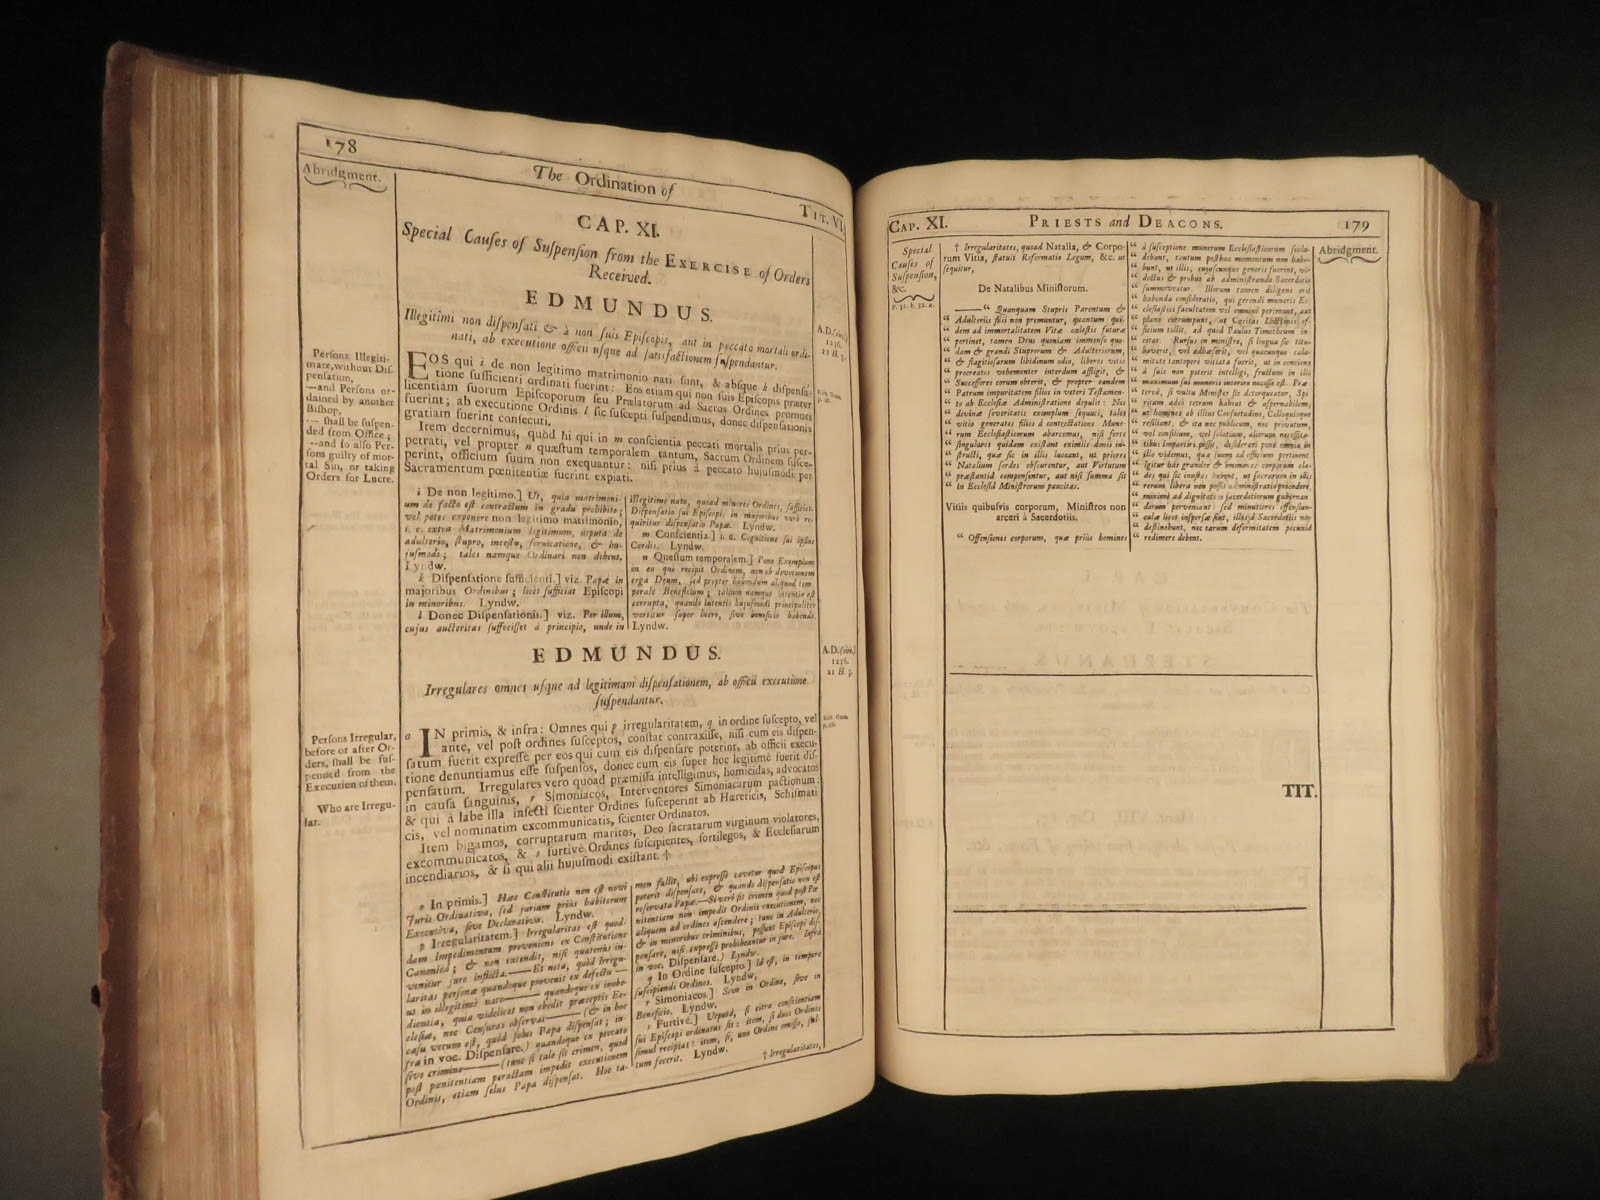 178
The Ordination of
TIT. VI.
Abridgment.
CAP. XI.
Special Causes of Suspension from the EXERCISE of Orders
Received.
EDMUNDUS.
Illegitimi non dispensati & à non suis Episcopis, aut in peccato mortali ordi-
nati, ab executione officii usque ad satisfactionem suspendantur.
A.D. (circ.)
1236.
21 H. 3.
Persons Illegiti-
mate, without Dis-
pensation,
—and Persons or-
dained by another
Bishop,
— shall be suspen-
ded from Office;
—and so also Per-
sons guilty of mor-
tal Sin, or taking
Orders for Lucre.
EOS qui i de non legitimo matrimonio nati sunt, & absque k dispensa-
tione sufficienti ordinati fuerint: Eos etiam qui non suis Episcopis præter
licentiam suorum Episcoporum seu Prælatorum ad Sacros Ordines promoti
fuerint; ab executione Ordinis l sic suscepti suspendimus, donec dispensationis
gratiam fuerint consecuti.
Item decernimus, quòd hi qui in m conscientia peccati mortalis prius per-
petrati, vel propter n quæstum temporalem tantum, Sacrum Ordinem susce-
perint, officium suum non exequantur: nisi priùs à peccato hujusmodi per
Sacramentum pœnitentiæ fuerint expiati.
i De non legitimo.] Ut, quia matrimoni-
um de facto est contractum in gradu prohibito;
vel potes exponere non legitimo matrimonio,
i. e. extra Matrimonium legitimum, utputa de
adulterio, stupro, incestu, fornicatione, & hu-
jusmodi; tales namque Ordinari non debent.
Lyndw.
k Dispensatione sufficienti.] viz. Papæ in
majoribus Ordinibus; licèt sufficiat Episcopi
in minoribus. Lyndw.
l Donec Dispensationis.] viz. Per illum,
cujus auctoritas suffecisset à principio, unde in
illegitimè nato, quoad minores Ordines, sufficiet
Dispensatio sui Episcopi, in majoribus verò re-
quiritur dispensatio Papæ. Lyndw.
m Conscientia] i. e. Cognitione sui ipsius
Cordis. Lyndw.
n Quæstum temporalem.] Pone Exemplum
in eo qui recipit Ordinem, non ob devotionem
erga Deum, sed propter habendum aliquod tem-
porale Beneficium; talium namque intentio est
corrupta, quando intentio hujusmodi principaliter
vertitur super lucro, sive beneficio habendo.
Lyndw.
EDMUNDUS.
Irregulares omnes usque ad legitimam dispensationem, ab officii executione
suspendantur.
A.D. (circ.)
1236.
21 H. 3.
Persons Irregular,
before or after Or-
ders, shall be sus-
pended from the
Execution of them.
Who are Irregu-
lar.
o IN primis, & infra: Omnes qui p irregularitatem, q in ordine suscepto, vel
ante, vel post ordines susceptos, constat contraxisse, nisi cum eis dispen-
satum fuerit expressè per eos qui cum eis dispensare poterint, ab officii execu-
tione denuntiamus esse suspensos, donec cum eis super hoc legitimè fuerit dis-
pensatum. Irregulares vero quoad præmissa intelligimus, homicidas, advocatos
in causa sanguinis, r Simoniacos, Interventores Simoniacarum pactionum:
& qui à labe illa infecti scienter Ordines susceperint ab Hæreticis, Schismati-
cis, vel nominatim excommunicatis, scienter Ordinatos.
Item bigamos, corruptarum maritos, Deo sacratarum virginum violatores,
excommunicatos, & s furtivè Ordines suscipientes, sortilegos, & Ecclesiarum
incendiarios, & si qui alii hujusmodi existant. †
o In primis.] Hæc Constitutio non est novi
Juris Ordinativa, sed jurium priùs habitorum
Executiva, sive Declarativa. Lyndw.
p Irregularitatem.] Irregularitas est quod-
dam Impedimentum proveniens ex Constitutione
Canonica; & non extendit, nisi quatenùs in-
venitur jure inflicta.—Et nota, quòd Irregu-
laritas personæ quandoque provenit ex defectu—
ut in illegitimè nato— quandoque ex inobe-
dientia, quia videlicet non obedit præceptis Ec-
clesiæ, nec Censuras observat— (& in hoc
casu verum est, quòd solus Papa dispensat; in-
fra in voc. Dispensare.) quandoque ex peccato
sive crimine— (tunc si tale sit crimen, quod
post pœnitentiam peractam impedit executionem
Ordinis, etiam solus Papa dispensat. Hoc ta-
men fallit, ubi expressè cavetur quod Episcopus
poterit dispensare, & quando dispensatio non est
reservata Papæ.—Si verò sit crimen quod post Pœ-
nitentiam non impedit Ordinis executionem, nec
aliquem ad ordines ascendere; tunc in Adulterio,
& in minoribus criminibus, possunt Episcopi dis-
pensare, nisi expressè prohibeantur in jure. Infra
in voc. Dispensare.) Lyndw.
q In Ordine suscepto.] Id est, in tempore
suscipiendi Ordines. Lyndw.
r Simoniacos.] Sive in Ordine, sive in
Beneficio. Lyndw.
s Furtivè.] Utputa, si citra conscientiam
sui Episcopi ordinatus sit: item, si duos Ordines
simul recipiat: item, si, uno Ordine omisso, sal-
tum fecerit. Lyndw.
† Irregularitates,
CAP. XI.
PRIESTS and DEACONS.
179
Special
Causes of
Suspension,
&c.
p. 31. b. 32. a.
Abridgment.
† Irregularitates, quoad Natalia, & Corpo-
rum Vitia, statuit Reformatio Legum, &c. ut
sequitur,
De Natalibus Ministorum.
—“ Quanquam Stupris Parentum &
“ Adulteriis filii non premuntur, quantum qui-
“ dem ad immortalitatem Vitæ cælestis futuræ
“ pertinet, tamen Deus quoniam immenso quo-
“ dam & grandi Stuprorum & Adulteriorum,
“ & flagitiosarum libidinum odio, liberos vitio
“ procreatos vehementer interdum affligit, &
“ Successores eorum obterit, & propter eandem
“ Patrum impuritatem filios in veteri Testamen-
“ to ab Ecclesiæ Administratione depulit: Nos
“ divinæ severitatis exemplum sequuti, tales
“ vitio generatos filios à contrectatione Mune-
“ rum Ecclesiasticorum abarcemus, nisi forte
“ singulares quidam existant eximiis donis in-
“ structi, quæ sic in illis luceant, ut priores
“ Natalium sordes obscurentur, aut Virtutum
“ præstantiâ compensentur, aut nisi summa sit
“ in Ecclesiâ Ministrorum paucitas.
Vitiis quibusvis corporum, Ministros non
arceri à Sacerdotiis.
“ Offensiones corporum, quæ priùs homines
“ à susceptione munerum Ecclesiasticorum seclu-
“ debunt, tantum posthac momentum non habe-
“ bunt, ut illis, cujuscunque generis fuerint, vir
“ doctus & probus ab administrando Sacerdotio
“ summoveatur. Illorum tamen diligens erit
“ habenda consideratio, qui gerendi muneris Ec-
“ clesiastici facultatem vel omnino perimunt, aut
“ planè corrumpunt, ut Cæcitas Lectionis of-
“ ficium tollit, ad quod Paulus Timotheum in-
“ citat. Rursus in ministro, si lingua sic titu-
“ baverit, vel adhæserit, vel quacunque cala-
“ mitate tantopere vitiata fuerit, ut in concione
“ à suis non poterit intelligi, fructum in illo
“ maximum sui muneris interire necesse est. Præ-
“ tereà, si vultus Minister sic detorqueatur, Spi-
“ ritum adeò tetrum habeat & aspernabilem,
“ ut homines ab illius Consuetudine, Colloquioque
“ resiliant, & ita nec publicum, nec privatum,
“ vel consilium, vel solatium, aliorum necessita-
“ tibus impartiri possit, desiderari penè omnia in
“ illo videmus, quæ suum ad officium pertinent.
“ Igitur hæ grandes & immanes corporum cla-
“ des qui sic inustas habent, ut sacrarum in illis
“ rerum libera non possit administratio procedere,
“ minimè ad dignitatem sacerdotiorum gubernan-
“ dorum perveniant: sed minutiores offensiun-
“ culæ licèt inspersæ sint, illos à Sacerdotiis non
“ destinebunt, nec earum deformitatem pecuniâ
“ redimere debent.
TIT.